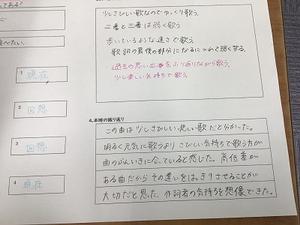 少しさびしい歌なのでゆっくり歌う。
二番と三番は弱く歌う
歩いているような速さで歌う
歌詞の最後の部分になるにつれて強くする。
過去の思い出をふり返りながら歌う
少し楽しい気持ちで歌う
1
現在
2
回想
3
回想
4
現在
4.本時の振り返り
この曲は少しさびしい悲しい歌だと分かった。
明るく元気に歌うよりさびしい気持ちで歌う方が
曲のふんいきに合っていると感じた。高低差が
ある曲だからその違いをはっきりさせることが
大切だと思った。作詞者の気持ちを想像できた。